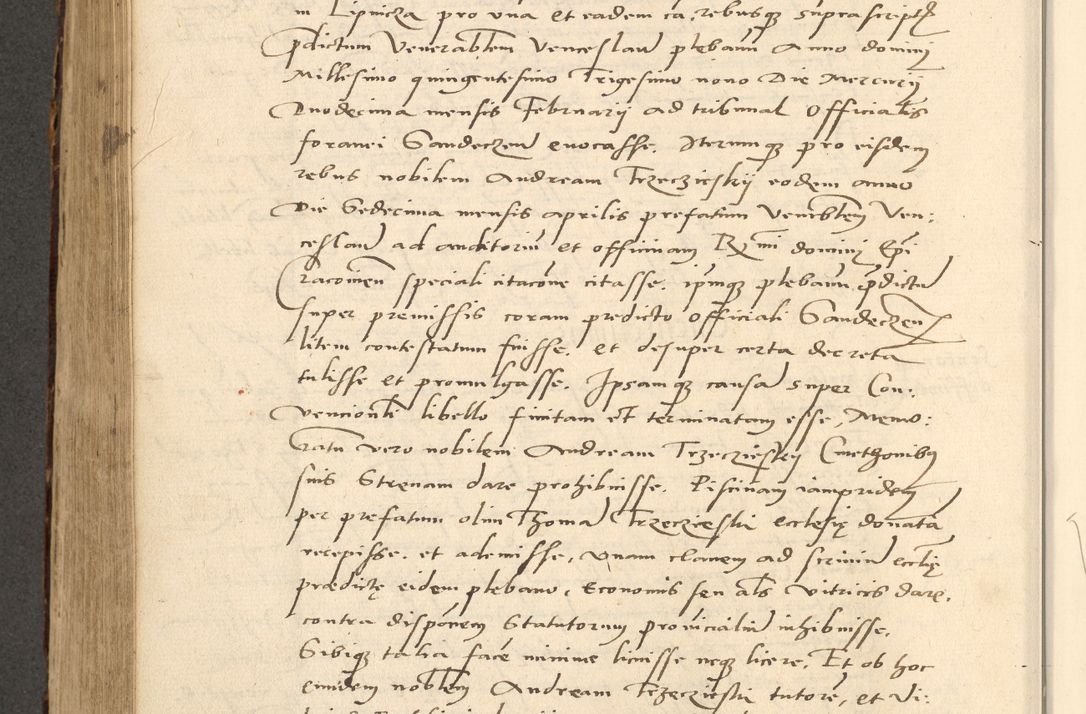 in Lipnicza pro una et eadem ca, rebusq suprascript
pdictum Venerablem Venceslau plebanu Anno domini
Millesimo quingentesimo Trigesimo nono Die Mercurij
Duodecima mensis Februarij ad tribunal Officialis
foranei Sandeczen evocasse. Iterumq pro eisdem
rebus nobilem Andream Trzeczieskij eodem anno
Die Sedecima mensis aprilis prefatum Venerblem Ven:
ceslau ad auditoriu et officinam Rmi domini Epi
Cracovien speciali citacone citasse. ipmq plebanu pdictu
super premissis coram predicto Officiali Sandeczen
litem contestatum fuisse. et desuper certa decreta
tulisse et promulgasse. Ipsamq causa super Con:
Vencionli libello finitam et terminatam esse, Memo:
ratu vero nobilem Andream Trzeczieskij Cmethonibus
suis Strenam dare prohibuisse. Piscinam iampridem
per prefatum olim Thoma Trzeczieski ecclesię donata
recepisse. et ademisse, unam clavem ad scriniu eccłię
prædictę eidem plebano, Economis seu als Vitricis dare,
contra dispónem Statutorum provincialiu inhibuisse,
Sibiq talia face minime licuisse neq licere, Et ob hoc
eundem noblem Andream Trzeczieski tutore, et Di: